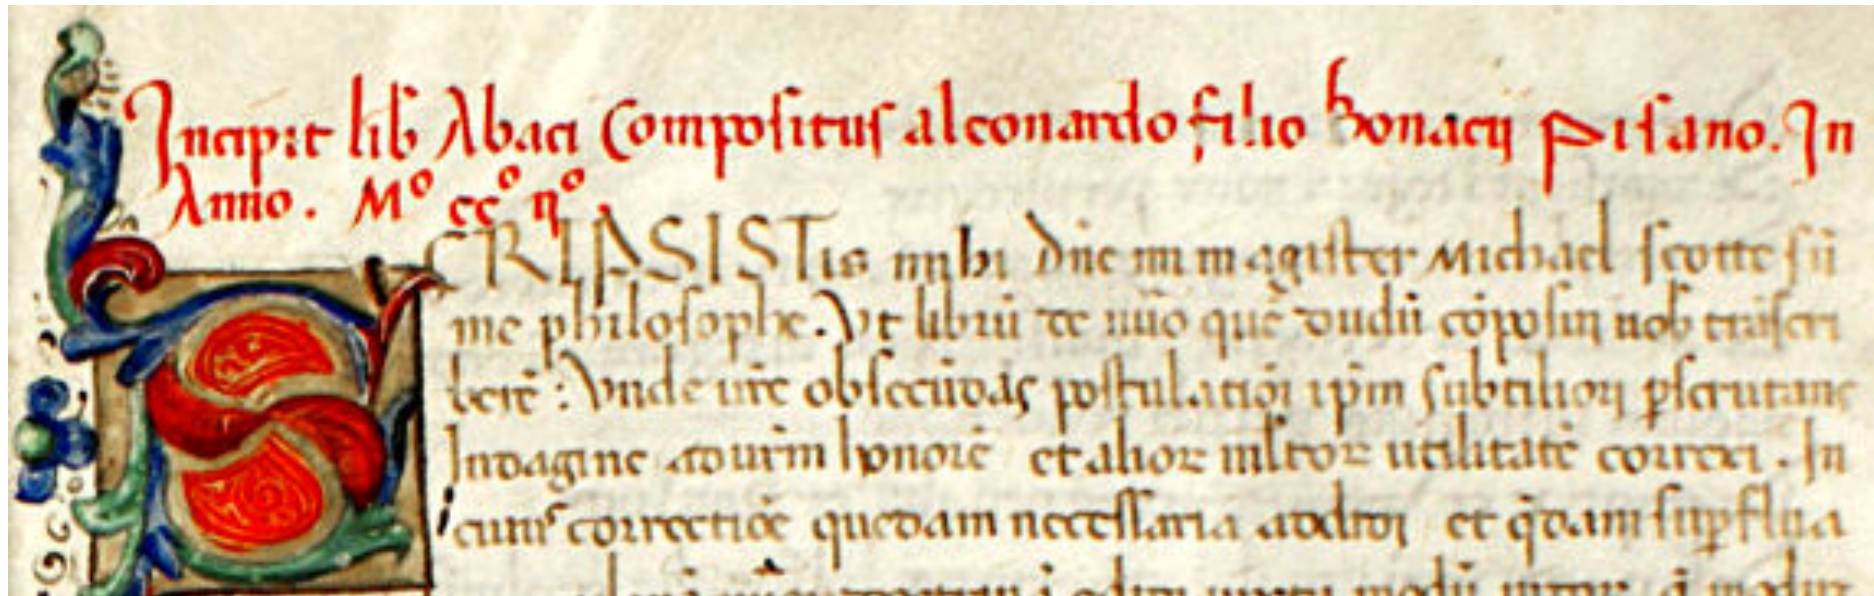 Incipit lib Abaci Compositus aleonardo filio bonacij pisano. In
Anno. Mº ccº ijº.
SCRIPSISTis mihi dn̄e mi magister Michael scotte sū
me philosophe. Vt librū de nūo quē dudū cōposui uob̄ trāscri
berē: Vnde ur̄e obsecūdās postulatiōi ip̄m subtiliori ꝑscrutans
Indagine ad ur̄m honorē et alioꝝ ml̄toꝝ utilitatē correxi. In
cuius correctiōe quedam necessaria addidi et q̄dam suꝑflua